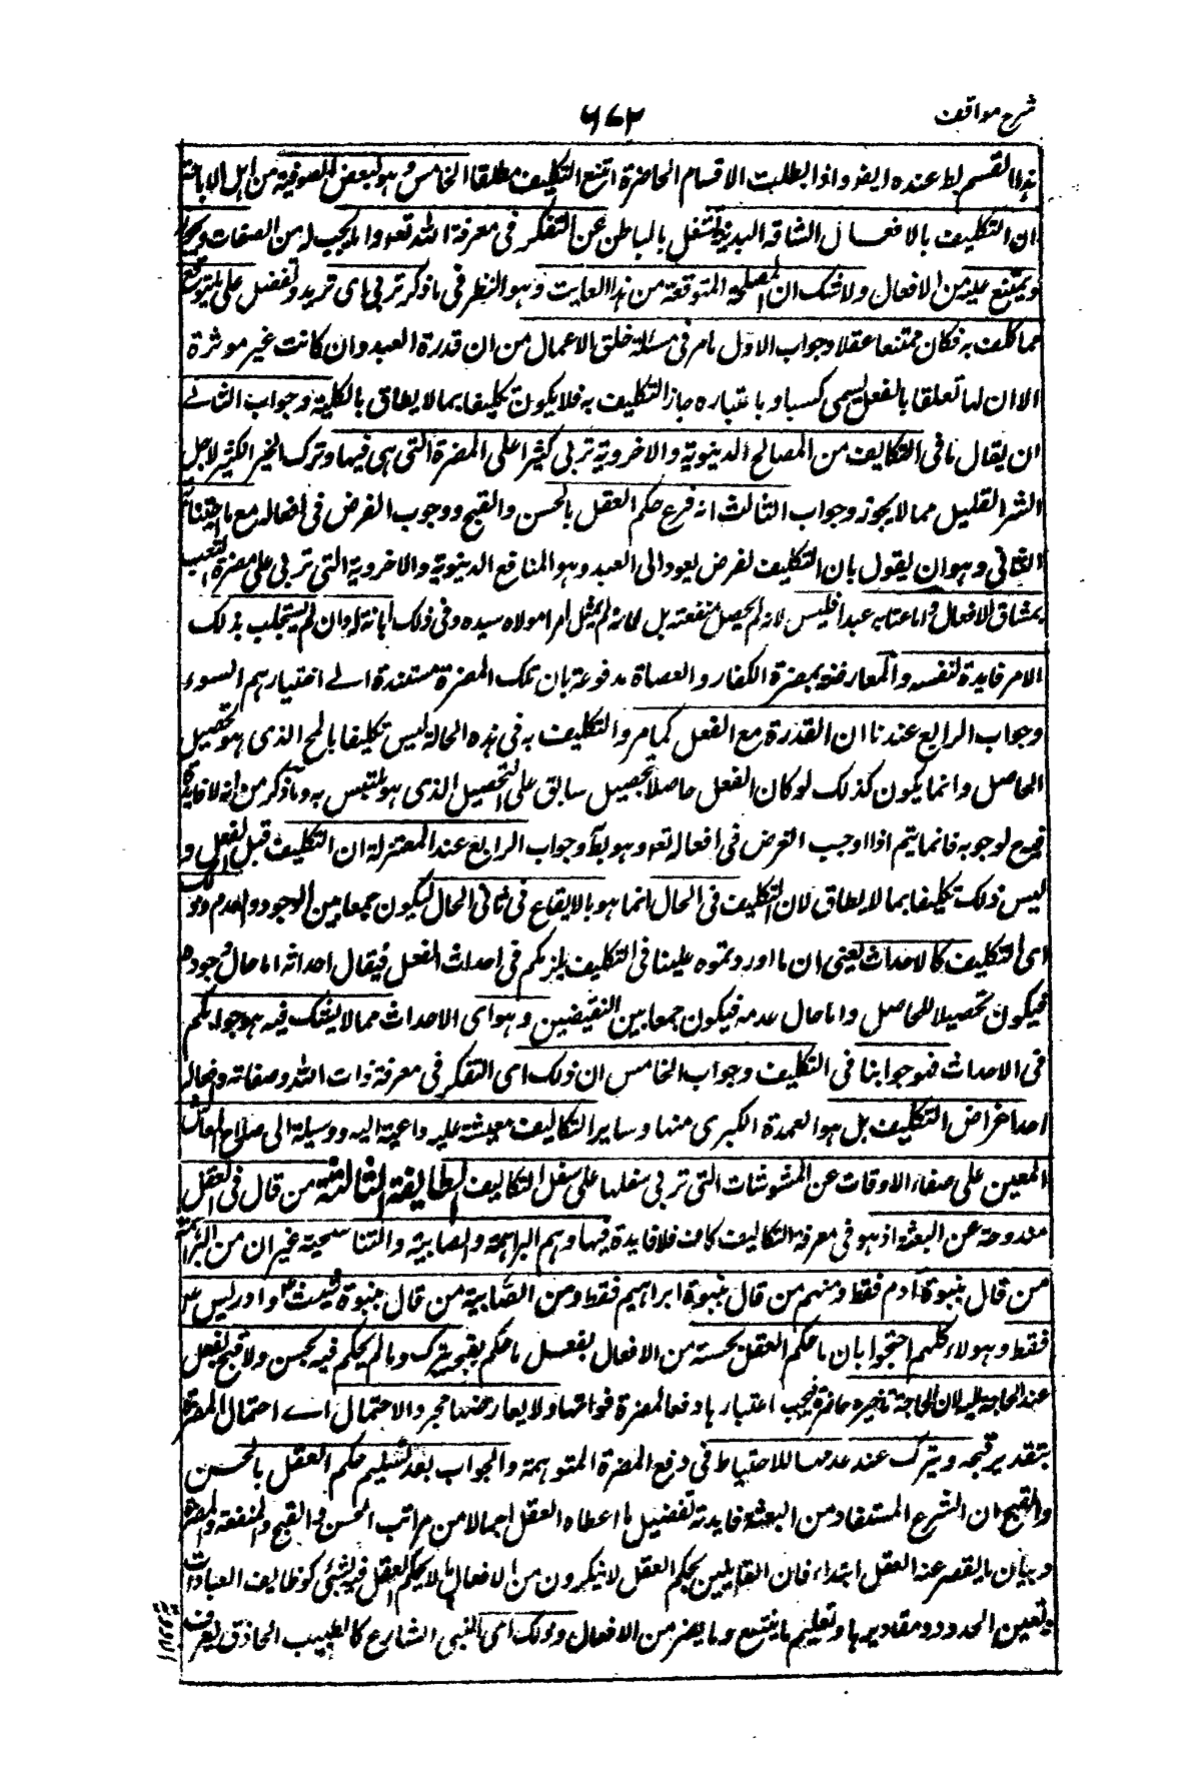 شرح مواقف
٦٧٢
هذا القسم بط عنده ايضو واذا بطلت الاقسام الحاضرة امتنع التكليف مطلقا الخامس وهو لبعض الصوفية من اهل الاباحة
ان التكليف بالافعال الشاقة البدنية يشغل بالباطن عن التفكر فى معرفة الله تعه وما يجب له من الصفات
ويمتنع عليه من الافعال ولا شك ان المصلحة المتوقعة من هذا الغايت وهو النظر فى ما ذكر تربى اى تزيد وتفضل على ما يتوقع
مما كلف به فكان ممتنعا عقلا وجواب الاول ما مر فى مسئلة خلق الاعمال من ان قدرة العبد وان كانت غير موثرة
الا ان لها تعلقا بالفعل يسمى كسبا وباعتباره جاز التكليف به فلا يكون تكليفا بما لا يطاق بالكلية وجواب الثانے
ان يقال ما فى التكاليف من المصالح الدينوية والاخروية تربى كثيرا على المضرة التى هى فيها وترك الخير الكثير لاجل
الشر القليل مما لا يجوز وجواب الثالث انه فرع حكم العقل بالحسن والقبح ووجوب الغرض فى افعاله مع ما اخترناه
الثانى وهو ان يقول بان التكليف لغرض يعود الى العبد وهو المنافع الدينوية والاخروية التى تربى على مضرة التعب
بمشاق الافعال واما عتابه عبدا فليس لانه لم يحصل منفعته بل لانه لم يمثل امر مولاه سيده وفى ذلك اهانة له وان لم يستجلب بذلك
الامر فايدة لنفسه والمعارضة بمضرة الكفار والعصاة مدفوعة بان تلك المضرة مستندة الے اختيارهم السوء
وجواب الرابع عندنا ان القدرة مع الفعل كما مر والتكليف به فى هذه الحالة ليس تكليفا بالمح الذى هو تحصيل
الحاصل وانما يكون كذلك لو كان الفعل حاصلا بتحصيل سابق على التحصيل الذى هو ملتبس به وما ذكر من انه لا فايدة
فيه ح لوجوبه فانما يتم اذا وجب الغرض فى افعاله تعه وهو بط وجواب الرابع عند المعتزلة ان التكليف قبل الفعل و
ليس ذلك تكليفا بما لا يطاق لان التكليف فى الحال انما هو بالايقاع فى ثانى الحال ليكون جمعا بين الوجود والعدم وذلك
اى التكليف كالاحداث يعنى ان ما اوردتموه علينا فى التكليف يلزمكم فى احداث الفعل فيقال احداثه اما حال وجوده
فيكون تحصيلا للحاصل واما حال عدمه فيكون جمعا بين النقيضين وهو اى الاحداث مما لا يشك فيه فما هو جوابكم
فى الاحداث فهو جوابنا فى التكليف وجواب الخامس ان ذلك اى التفكر فى معرفة ذات الله وصفاته وافعاله
احد اغراض التكليف بل هو العمدة الكبرى منها وساير التكاليف معينة عليه داعية اليه ووسيلة الى صلاح المعاش
المعين على صفاء الاوقات عن المشوشات التى تربى شغلها على شغل التكاليف الطايفة الثالثة من قال فى العقل
مندوحة عن البعثة اذ هو فى معرفة التكاليف كاف فلا فايدة فيها وهم البراهمة والصابية والتناسخية غير ان من البراهمة
من قال بنبوة آدم فقط ومنهم من قال بنبوة ابراهيم فقط ومن الصابية من قال بنبوة شيث وادريس
فقط وهولاء كلهم احتجوا بان ما حكم العقل بحسنه من الافعال يفعل وما حكم بقبحه يترك وما لم يحكم فيه بحسن ولا قبح يفعل
عند الحاجة اليه لان الحاجة ناجزه حاضرة فيجب اعتبارها دفعا لمضرة فواتها ولا يعارضها مجرد الاحتمال اے احتمال المضرة
بتقدير قبحه ويترك عند عدمها للاحتياط فى دفع المضرة المتوهمة والجواب بعد تسليم حكم العقل بالحسن
والقبح ان الشرع المستفاد من البعثة فايدته تفصيل ما اعطاه العقل اجمالا من مراتب الحسن والقبح والمنفعة والمضرة
وبيان ما يقصر عنه العقل ابتداء فان القايلين بحكم العقل لا ينكرون من الافعال ما لا يحكم العقل فيه بشئ كوظايف العبادات
وتعيين الحدود ومقاديرها وتعليم ما ينفع وما يضر من الافعال وذلك اى النبى الشارع كالطبيب الحاذق يعرف